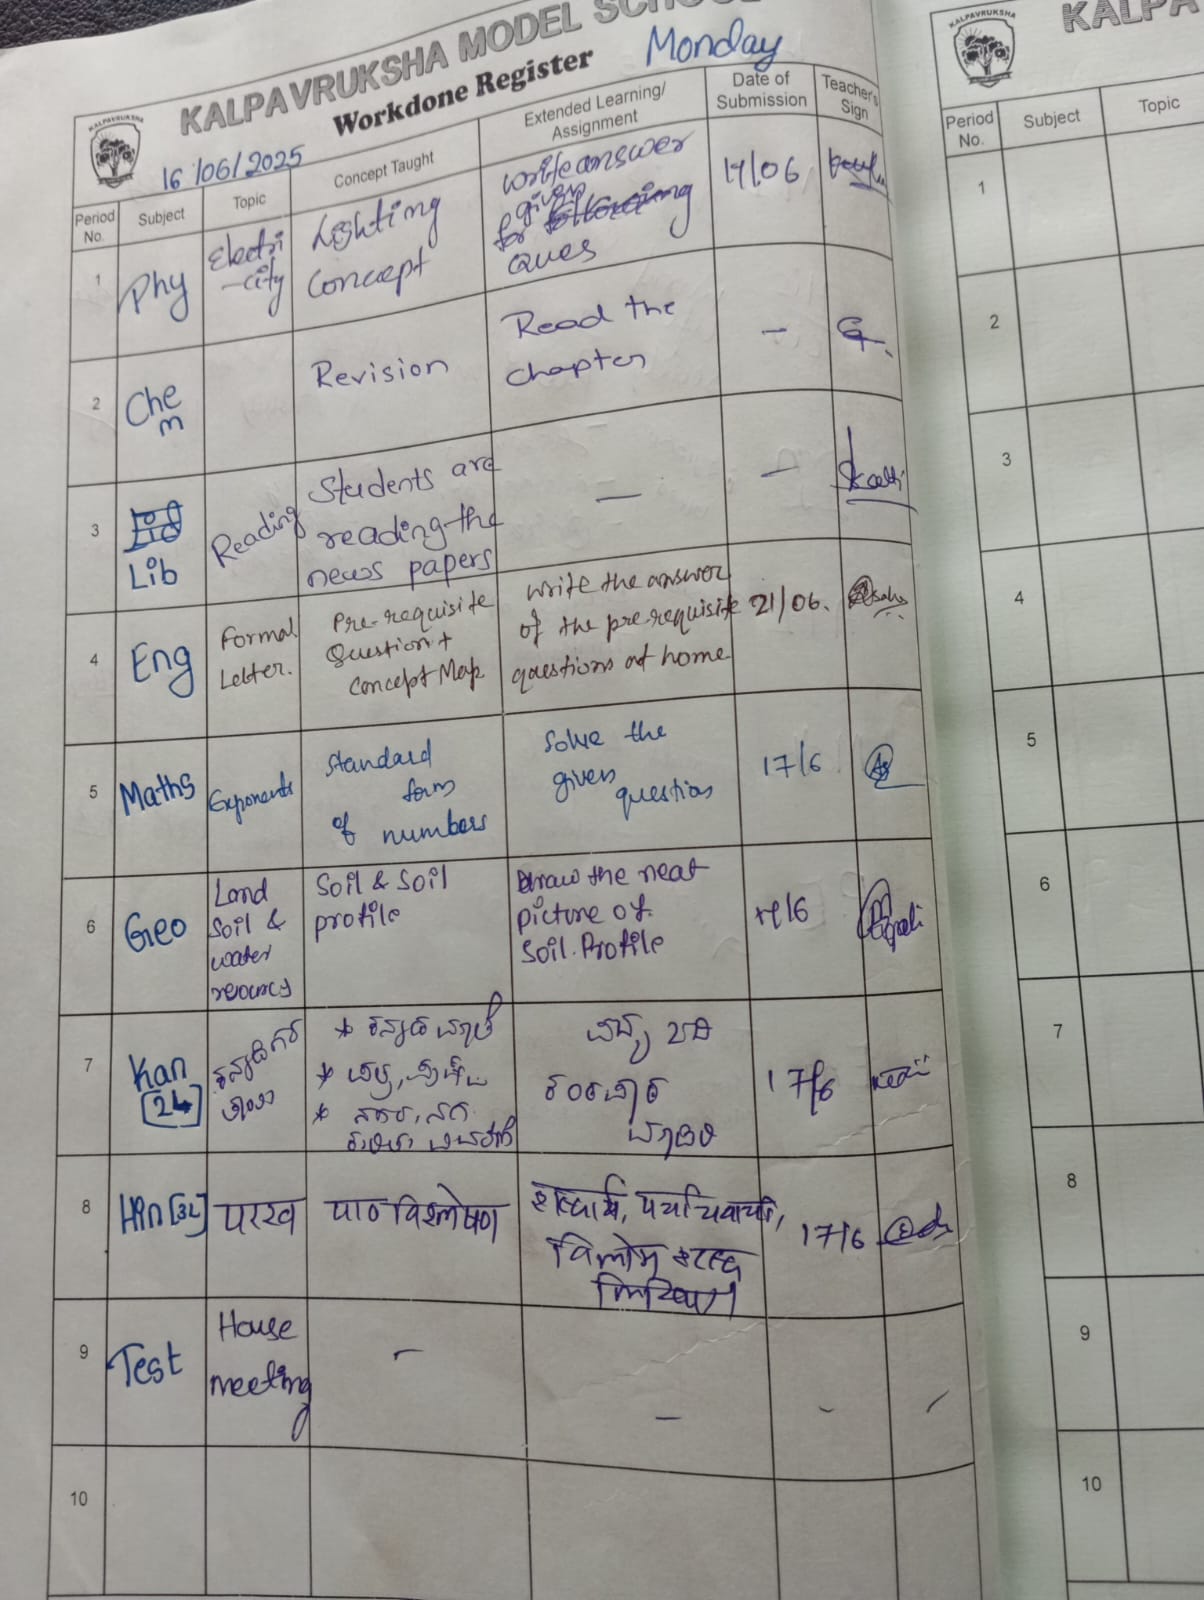 KALPAVRUKSHA MODEL SCHOOL
Workdone Register
Monday
KALPAVRUKSHA
16/06/2025
Period No.
Subject
Topic
Concept Taught
Extended Learning/
Assignment
Date of
Submission
Teacher's
Sign
1
Phy
Electri
-city
Lighting
Concept
write answer
given
for
ques
17/06
2
Che
m
Revision
Read the
chapter
-
3
Lib
Reading
Students are
reading the
news papers
-
-
4
Eng
Formal
Letter.
Pre-requisite
Question +
Concept Map
Write the answer
of the pre-requisite
questions at home
21/06.
5
Maths
Exponents
Standard
form
of numbers
Solve the
given
question
17/6
6
Geo
Land
Soil &
water
resources
Soil & Soil
profile
Draw the neat
picture of
Soil. Profile
17/6
7
Kan
[24]
17/6
8
Hin [3L]
परख
पाठ विश्लेषण
शब्दार्थ,
विलोम शब्द
17/6
9
Test
House
meeting
-
-
-
10
KALPAVRUKSHA
KALPA
Period
No.
Subject
Topic
1
2
3
4
5
6
7
8
9
10